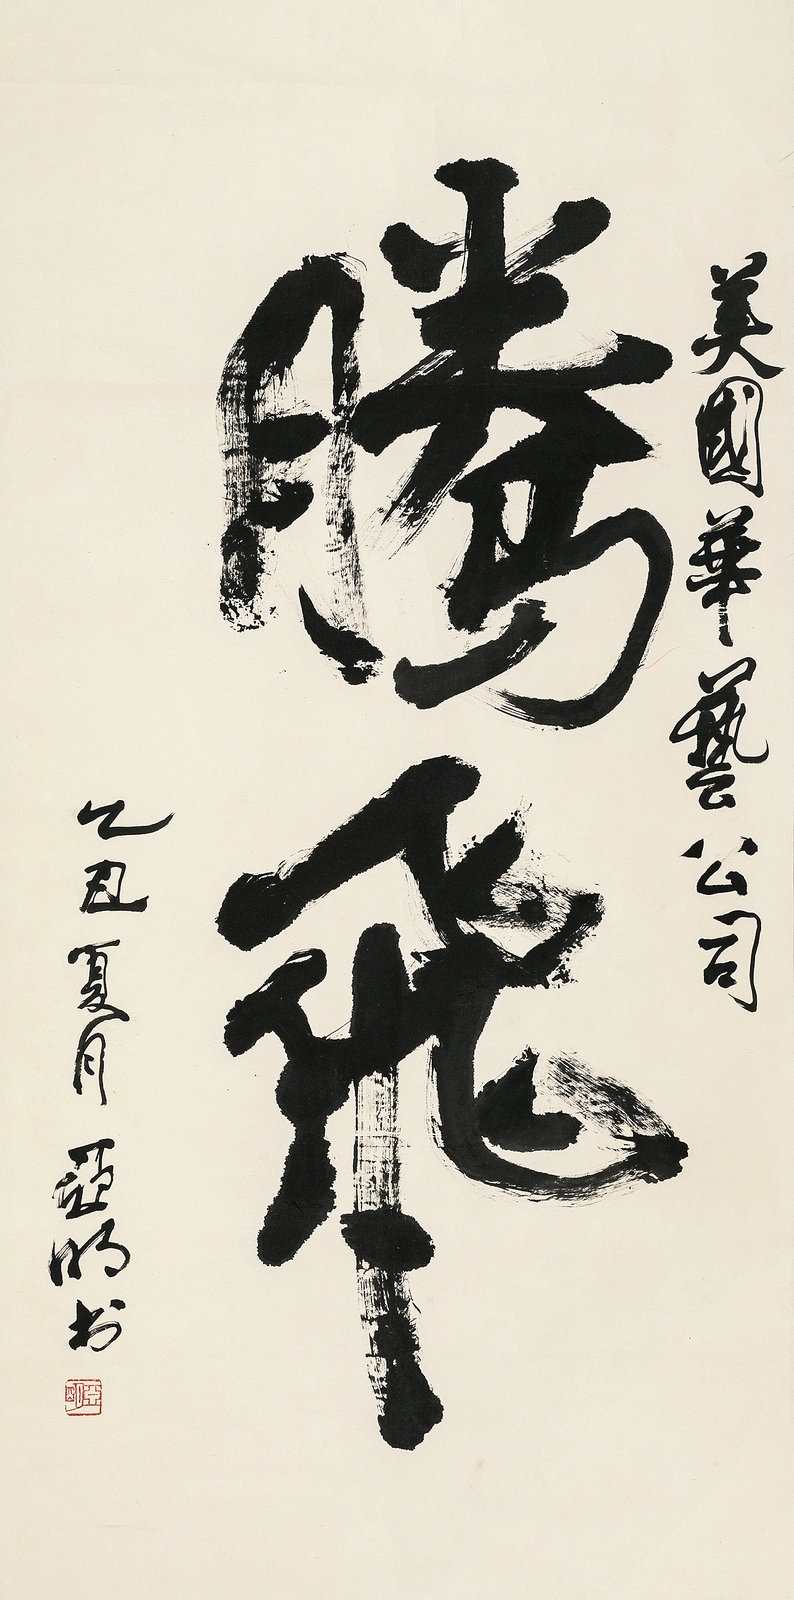 美國華藝公司
騰飛
乙丑夏月 亞明书
亞明